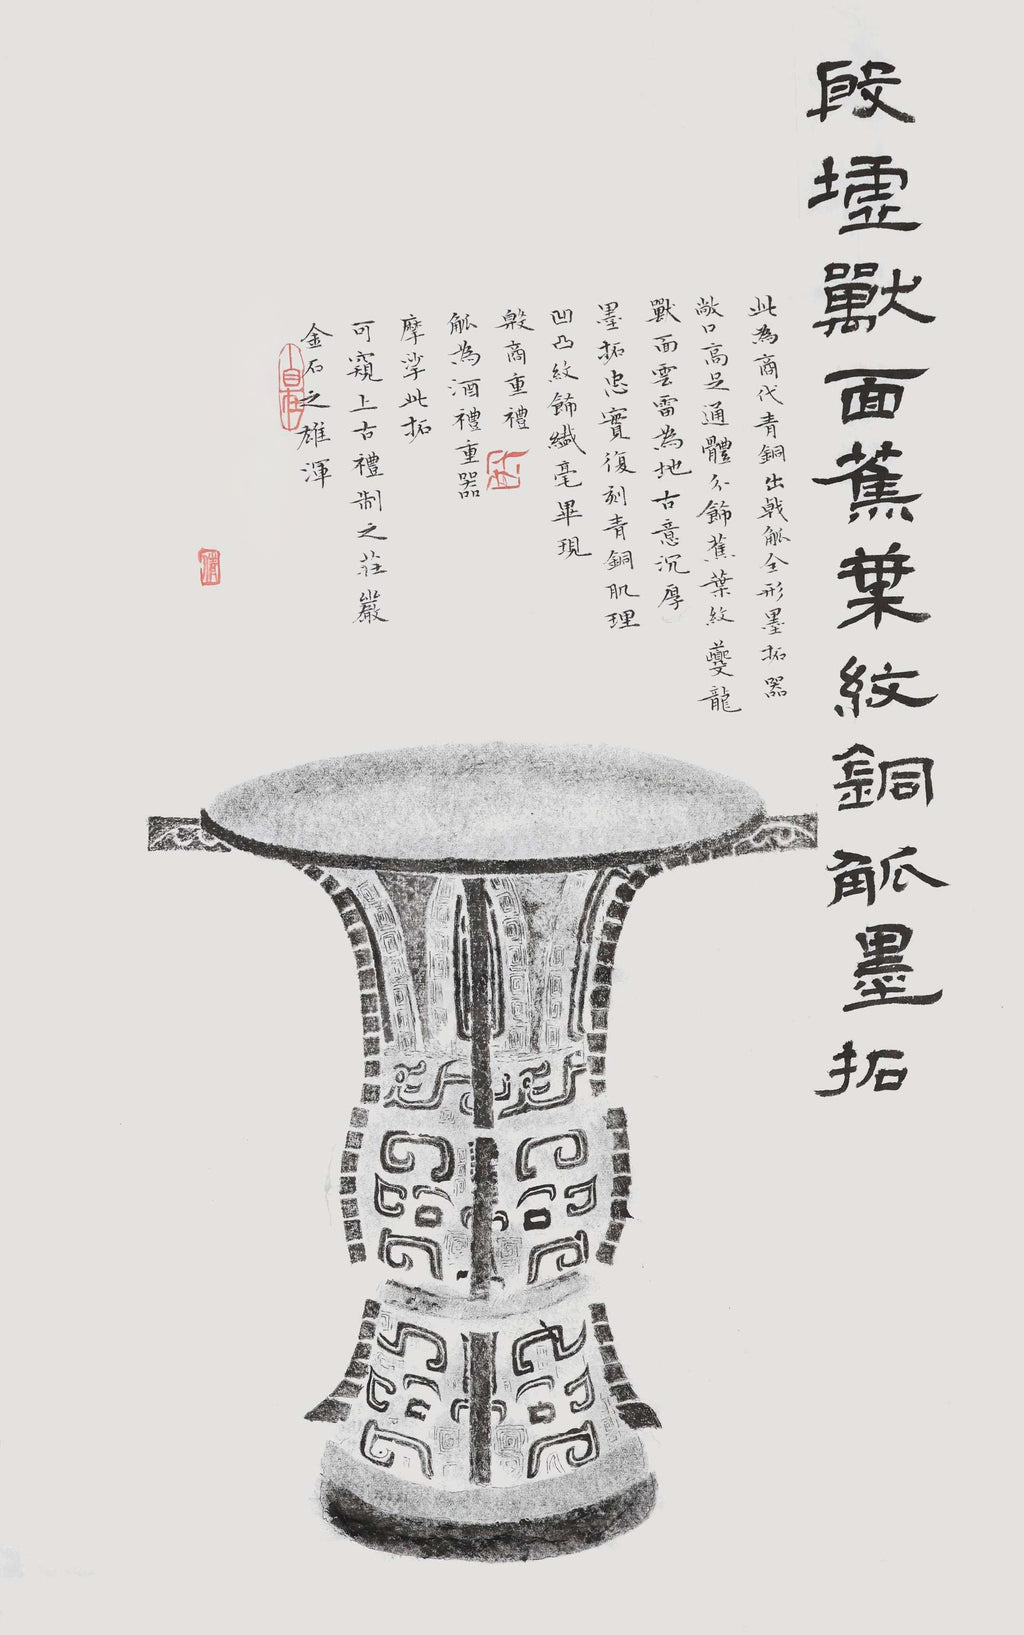 殷墟獸面蕉葉紋銅觚墨拓
此為商代青銅出戟觚全形墨拓器
敞口高足通體分飾蕉葉紋夔龍
獸面雲雷為地古意沉厚
墨拓忠實復刻青銅肌理
凹凸紋飾纖毫畢現
殷商重禮
觚為酒禮重器
摩挲此拓
可窺上古禮制之莊嚴
金石之雄渾
自在